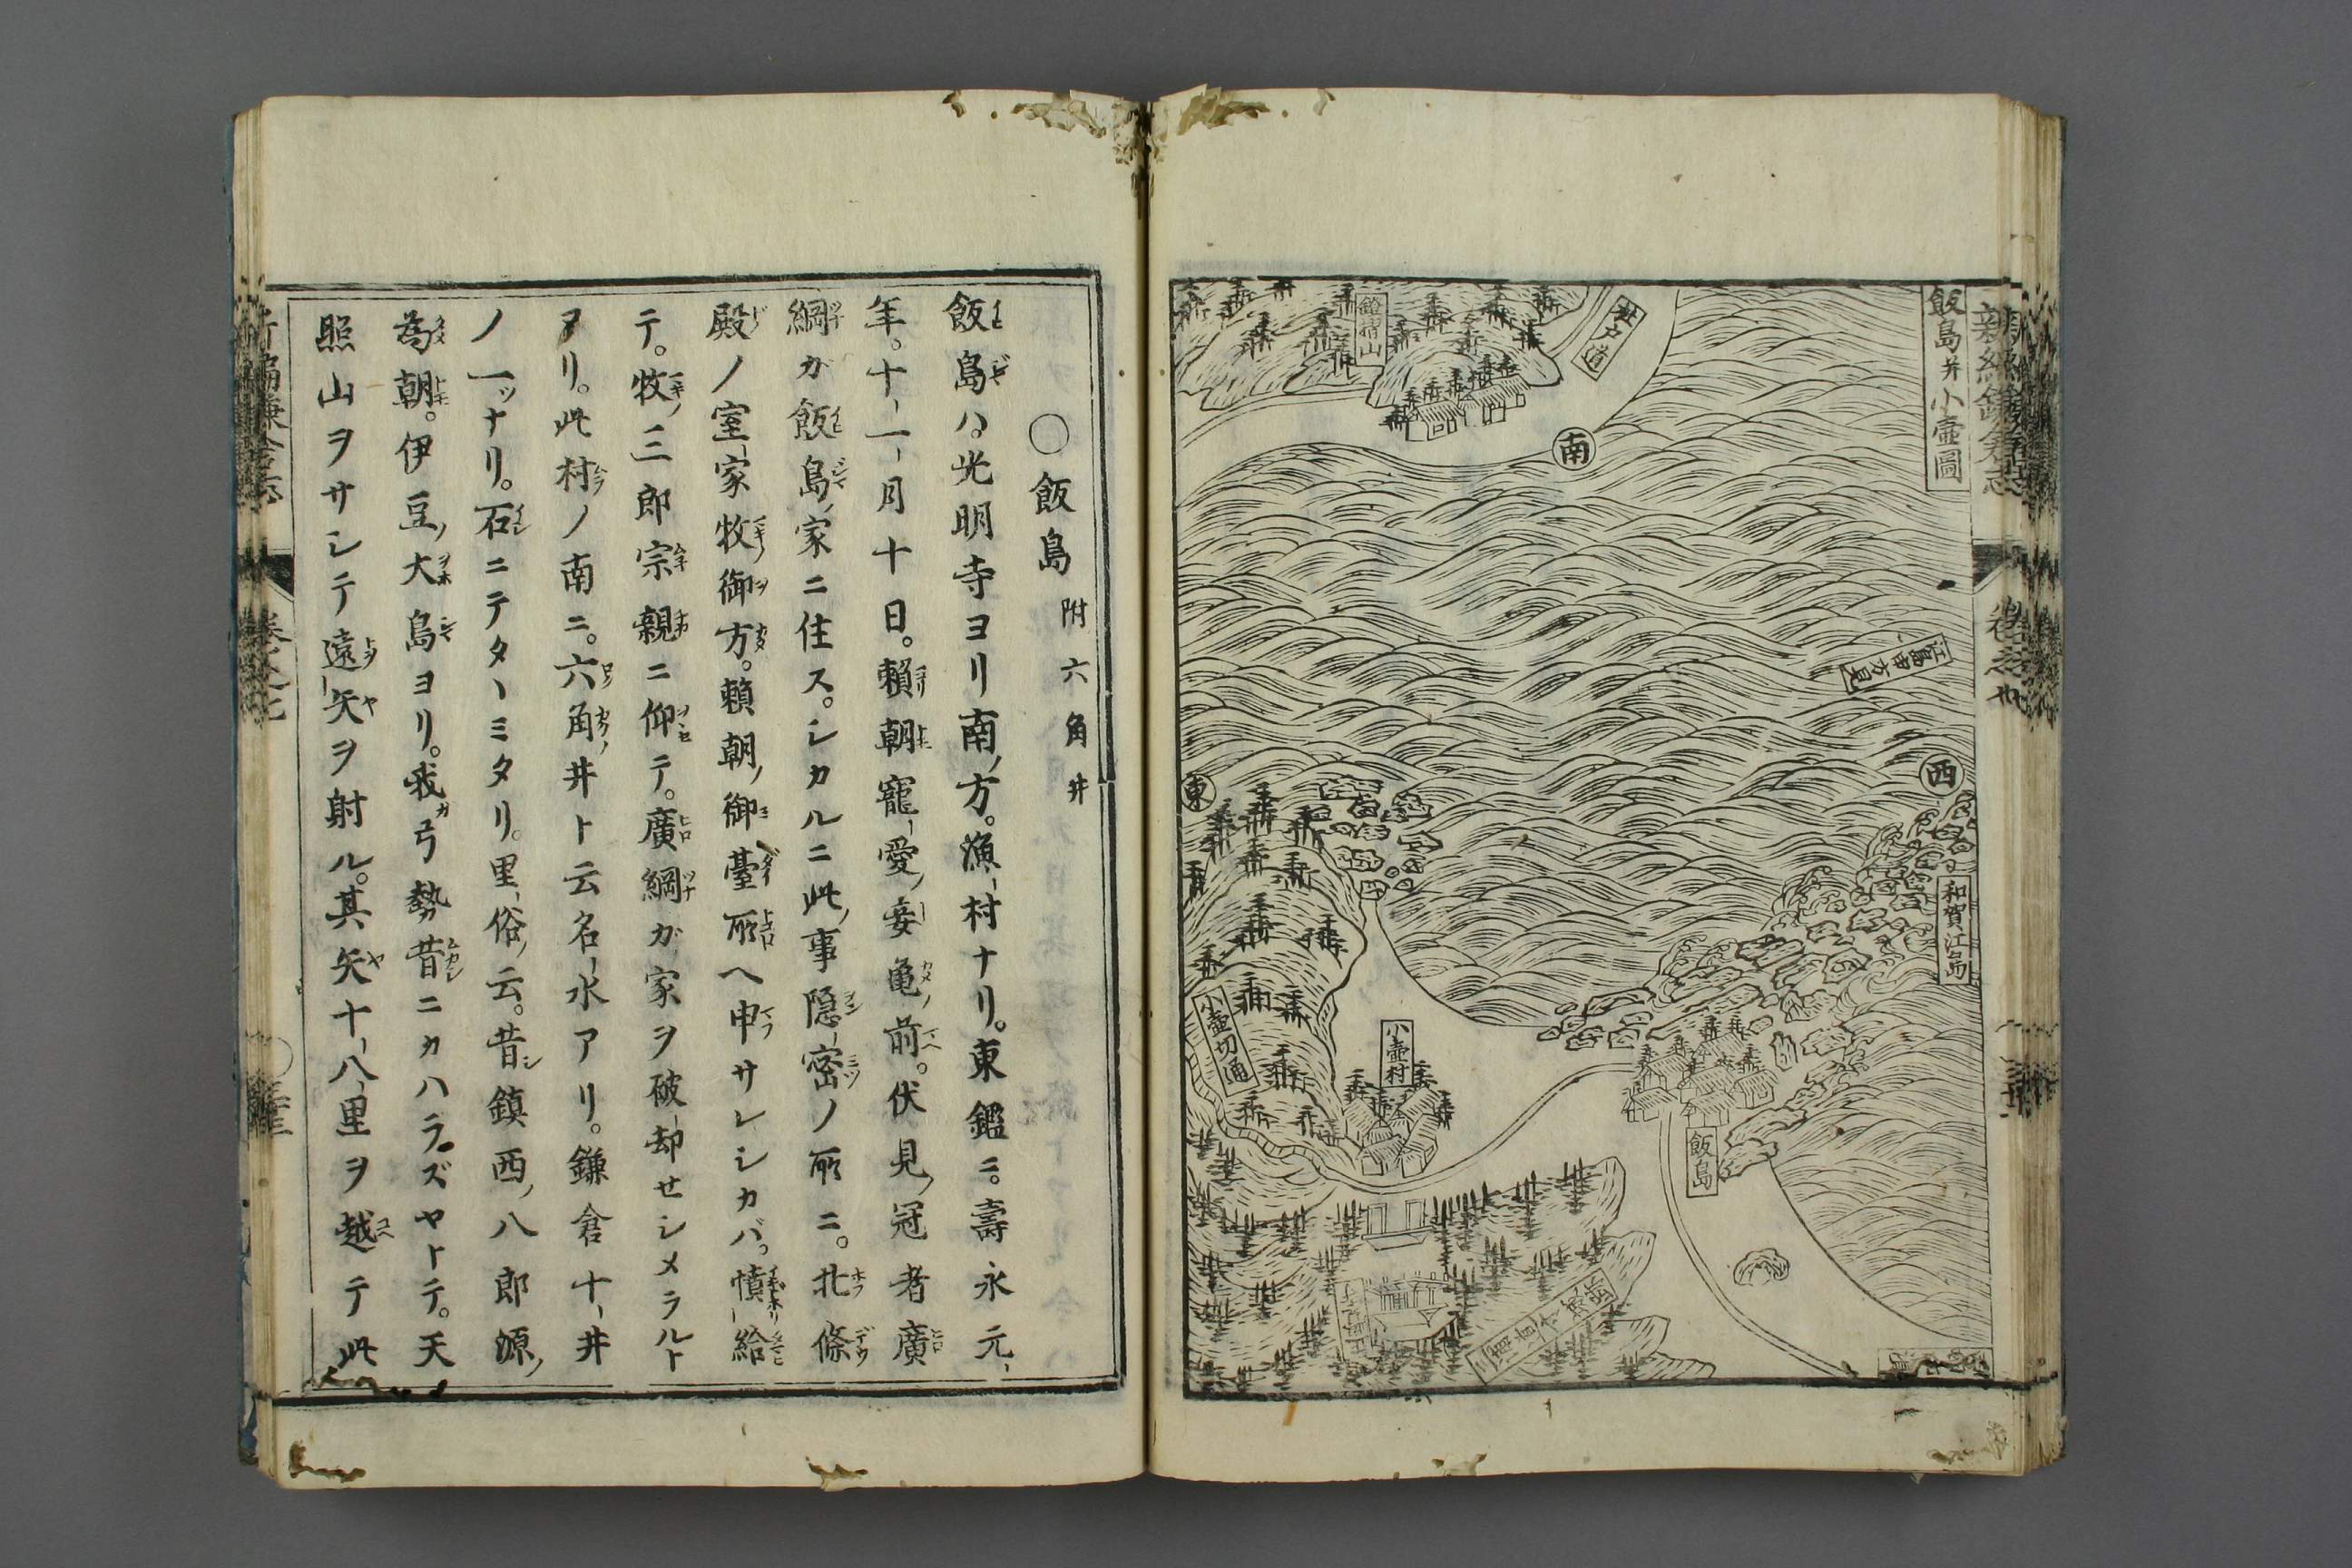 新編鎌倉志
卷之七
飯島并小壺圖
江島申方見
西
和賀江島
杜戸道
南
鐙摺山
東
小壺切通
小壺村
飯島
〇飯島附六角井
飯島ハ。光明寺ヨリ南ノ方。漁村ナリ。東鑑ニ。壽永元
年。十一月十日。賴朝寵愛ノ妾亀ノ前。伏見ノ冠者廣
綱ガ飯島ノ家ニ住ス。シカルニ此ノ事隱密ノ所ニ。北條
殿ノ室家牧ノ御方。賴朝ノ御臺所ヘ申サレシカバ。憤給
テ。牧ノ三郎宗親ニ仰テ。廣綱ガ家ヲ破却せシメラルト
アリ。此村ノ南ニ。六角ノ井ト云名水アリ。鎌倉十井
ノ一ッナリ。石ニテタヽミタリ。里俗ノ云。昔シ鎮西ノ八郎源ノ
為朝。伊豆ノ大島ヨリ。我ガ弓勢昔ニカハラズヤトテ。天
照山ヲサシテ遠矢ヲ射ル。其矢十八里ヲ越テ此